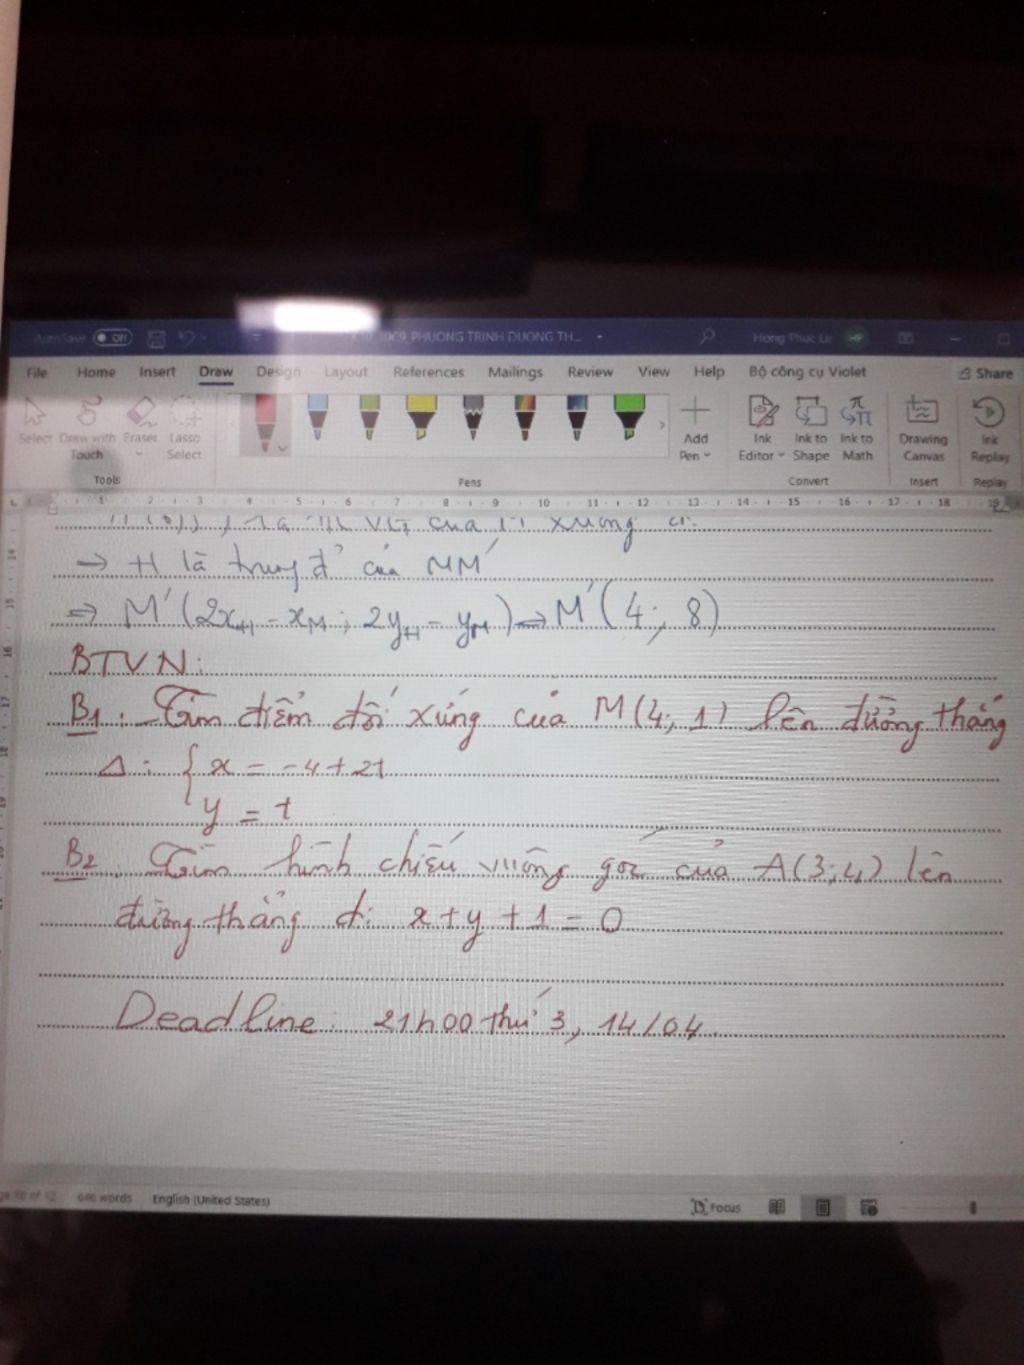 AutoSave Off 10C9_PHUONG TRINH DUONG TH... Hong Phuc Le HP
File Home Insert Draw Design Layout References Mailings Review View Help Bộ công cụ Violet Share
Select Draw with Touch Eraser Lasso Select Add Pen Ink Editor Ink to Shape Ink to Math Drawing Canvas Ink Replay
Tools Pens Convert Insert Replay
2 3 4 5 6 7 8 9 10 11 12 13 14 15 16 17 18 19
của M xuống d.
→ H là trung đ' của MM'
⇒ M'(2x_H - x_M; 2y_H - y_M) ⇒ M'(4; 8)
BTVN:
B1: Tìm điểm đối xứng của M(4; 1) lên đường thẳng
Δ: { x = -4 + 2t
y = t
B2: Tìm hình chiếu vuông góc của A(3; 4) lên
đường thẳng d: x + y + 1 = 0
Deadline: 21h00 thứ 3, 14/04.
of 12 646 words English (United States) Focus